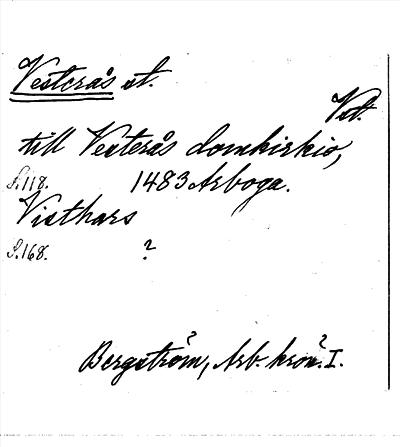 Vesterås st.
Vst.
till Vesterås domkirkio,
S. 118. 1483 Arboga.
Visthars
S. 168. ?
Bergström, Arb. krön. I.